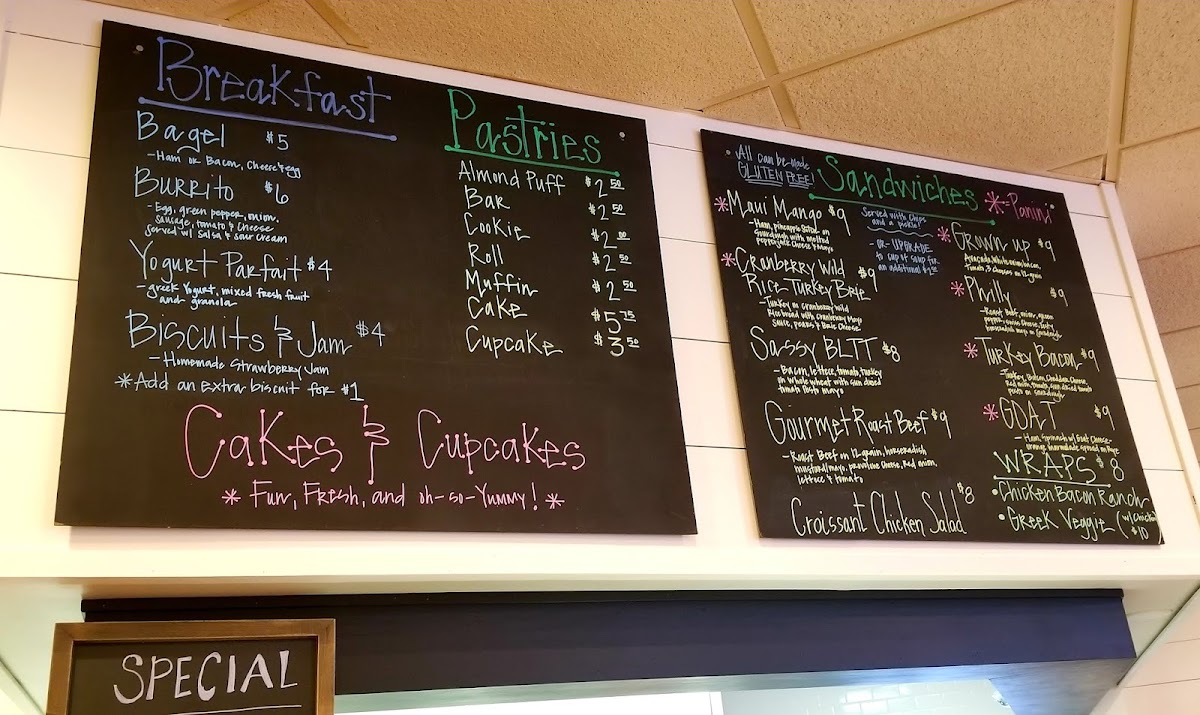 Breakfast
Bagel $5
- Ham or Bacon, Cheese & egg
Burrito $6
- Egg, green pepper, onion,
sausage, tomato & cheese
served w/ salsa & sour cream
Yogurt Parfait $4
- greek yogurt, mixed fresh fruit
and granola
Biscuits & Jam $4
- Homemade Strawberry Jam
*Add an extra biscuit for $1
Pastries
Almond Puff $2.50
Bar $2.50
Cookie $2.00
Roll $2.50
Muffin $2.50
Cake $5.75
Cupcake $3.50
Cakes & Cupcakes
* Fun, Fresh, and oh-so-Yummy! *
All can be made
GLUTEN FREE!
Sandwiches
*-Panini
Served with chips
and a pickle!
-OR- UPGRADE
to cup of soup for
an additional
*Maui Mango $9
- Ham, pineapple on
sourdough with melted
pepperjack cheese & mayo
*Cranberry Wild $9
Rice-Turkey Brie
- Turkey on cranberry wild
rice bread with cranberry mayo
sauce, pears & Brie cheese
Sassy BLTT $8
- Bacon, lettece, tomato, turkey
on whole wheat with sun dried
tomato pesto mayo
Gourmet Roast Beef $9
- Roast Beef on 12 grain, horseradish
mustard/mayo, provolone cheese, red onion,
lettece & tomato
Croissant Chicken Salad $8
*Grown up $9
Avocado, White onion, bacon,
Tomato, 3 cheeses on 12 grain
*Philly $9
- Roast beef, onion, green
horseradish mayo on
*Turkey Bacon $9
- Turkey, Bacon, Cheddar Cheese,
Red onion, tomato, sun dried tomato
pesto on sourdough
*GOAT $9
- Ham, spinach w/ Goat Cheese-
orange marmalade spread on Rye
WRAPS $8
• Chicken Bacon Ranch
• Greek Veggie (w/ chicken
$10
SPECIAL